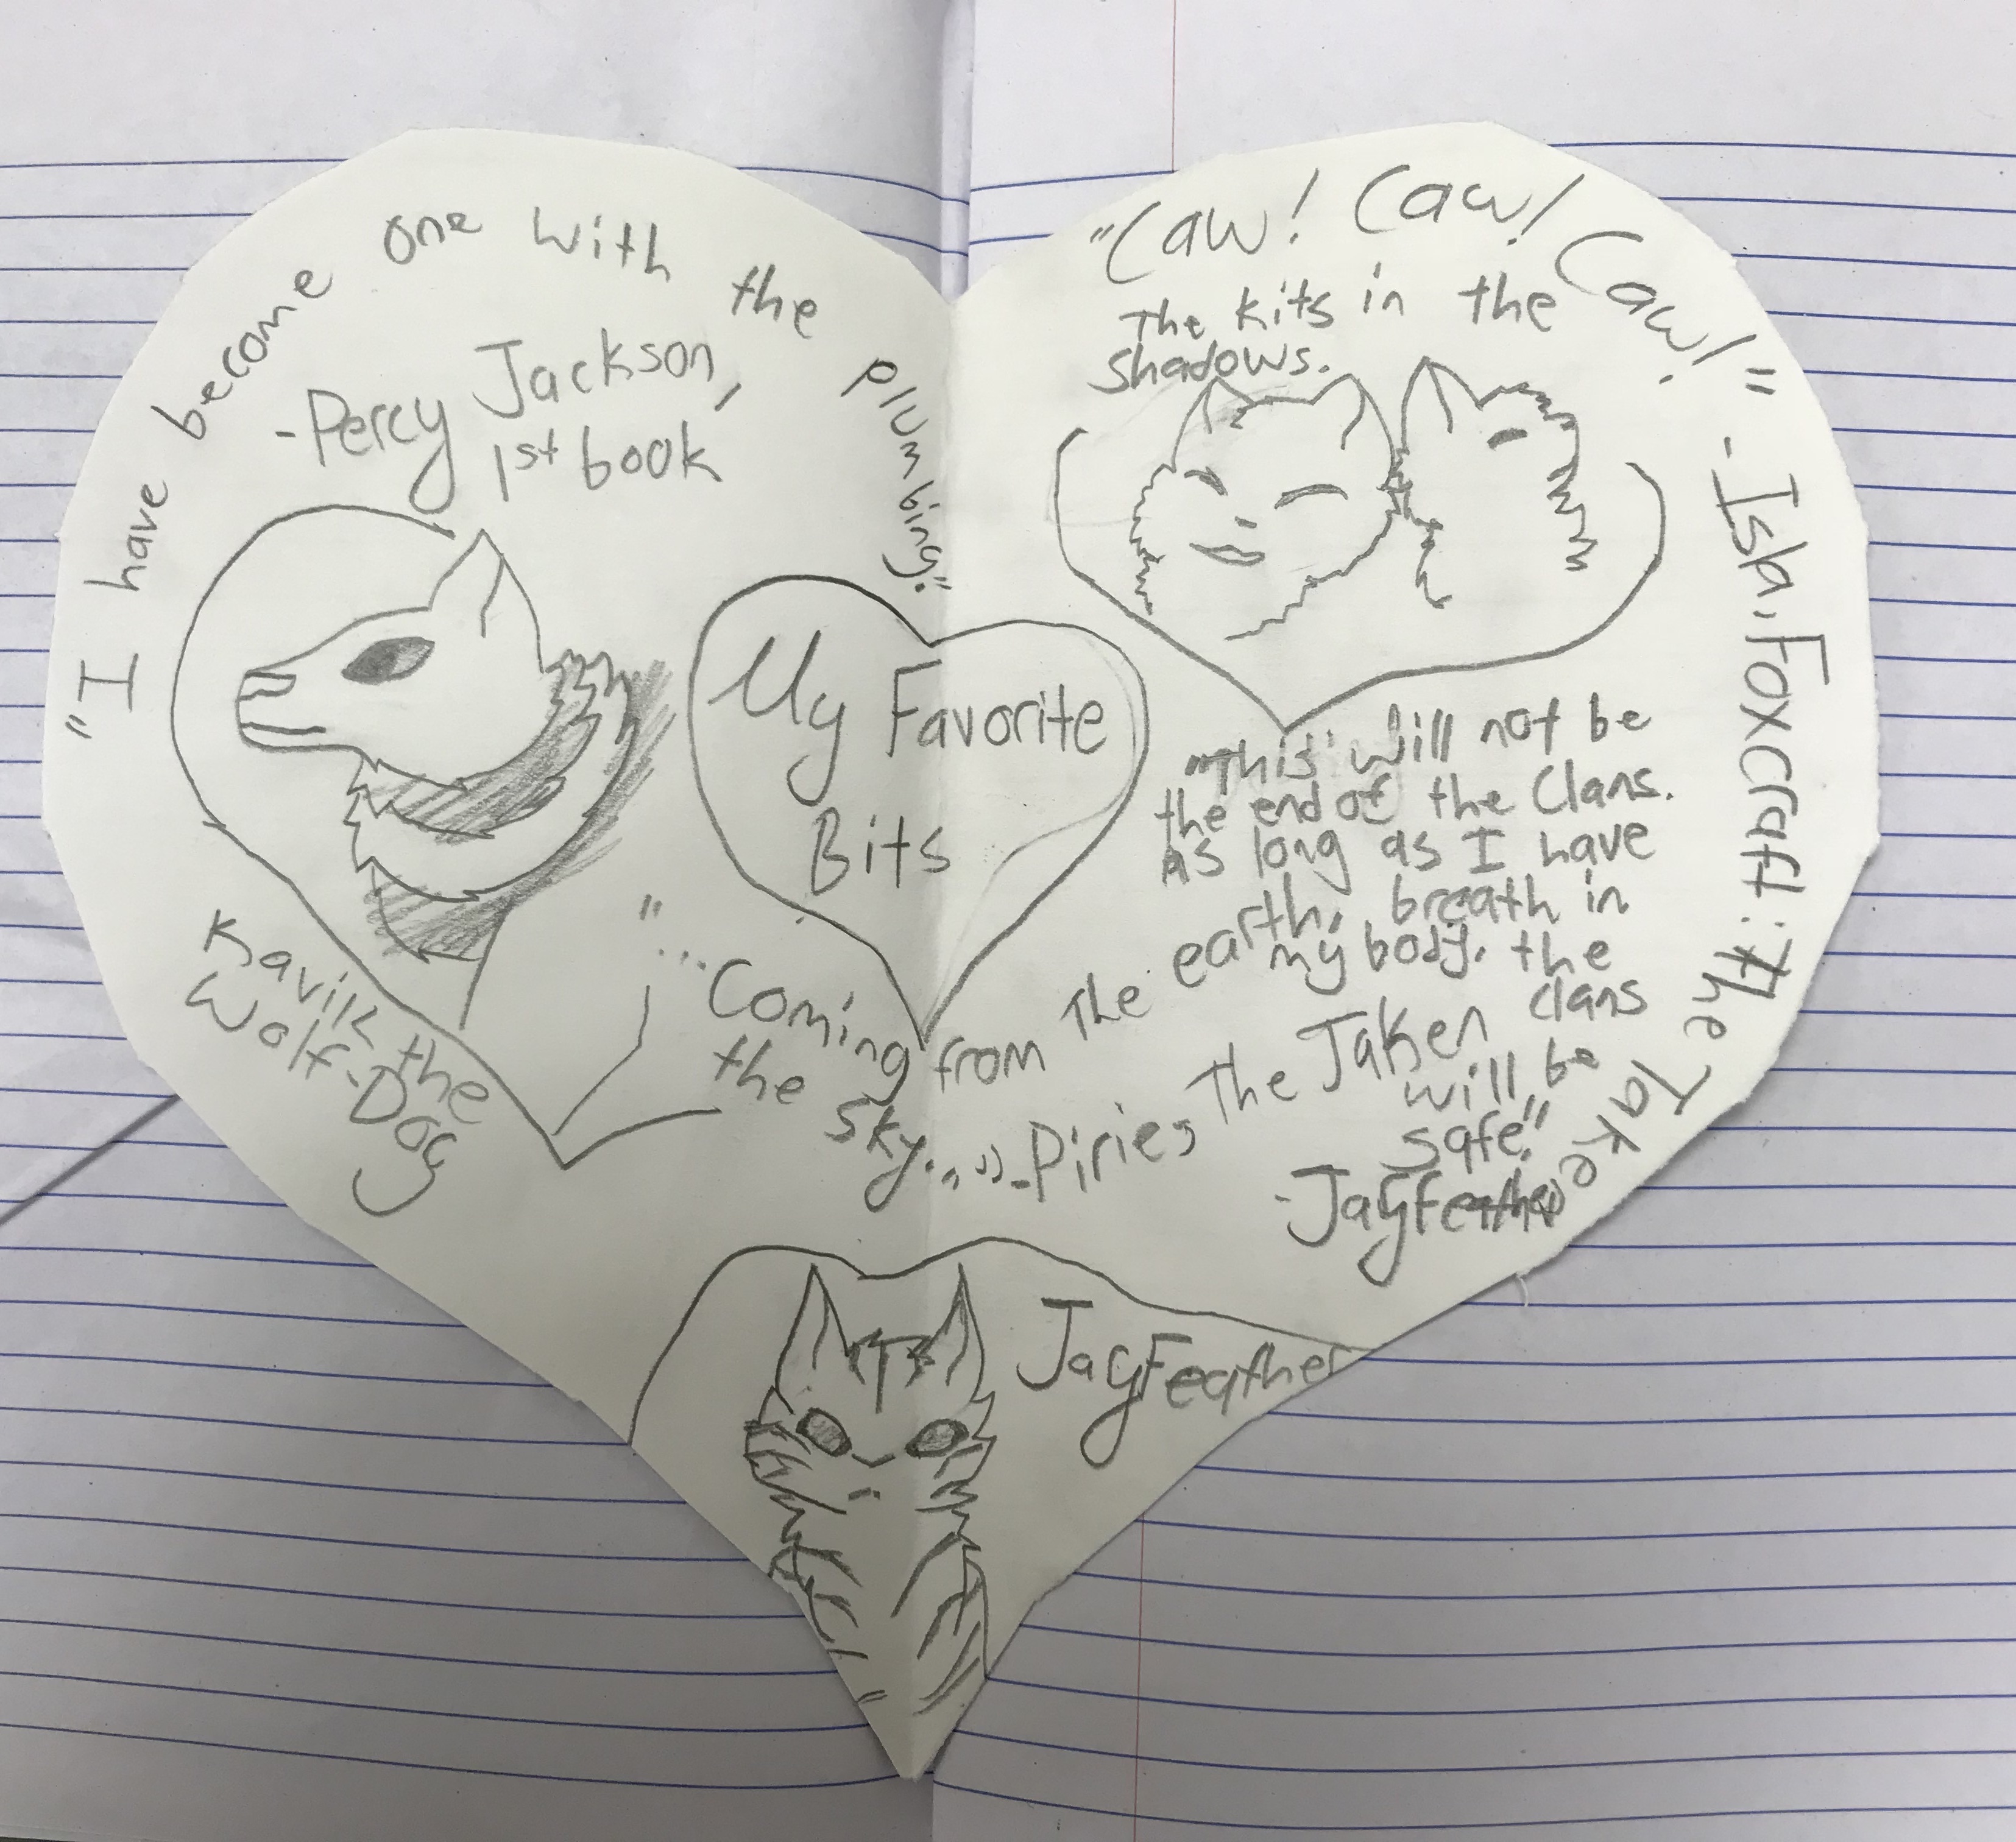 "I have become one with the plumbing."
-Percy Jackson,
1st book
"Caw! Caw! Caw!" -Isha, Foxcraft: The Taken
The kits in the
shadows.
My Favorite
Bits
"This will not be
the end of the Clans.
As long as I have
breath in
my body. the
clans
will be
safe."
-JayFeather
Kavik the
Wolf-Dog
"...Coming from The earth,
the sky..." -Piries The Taken
JayFeather